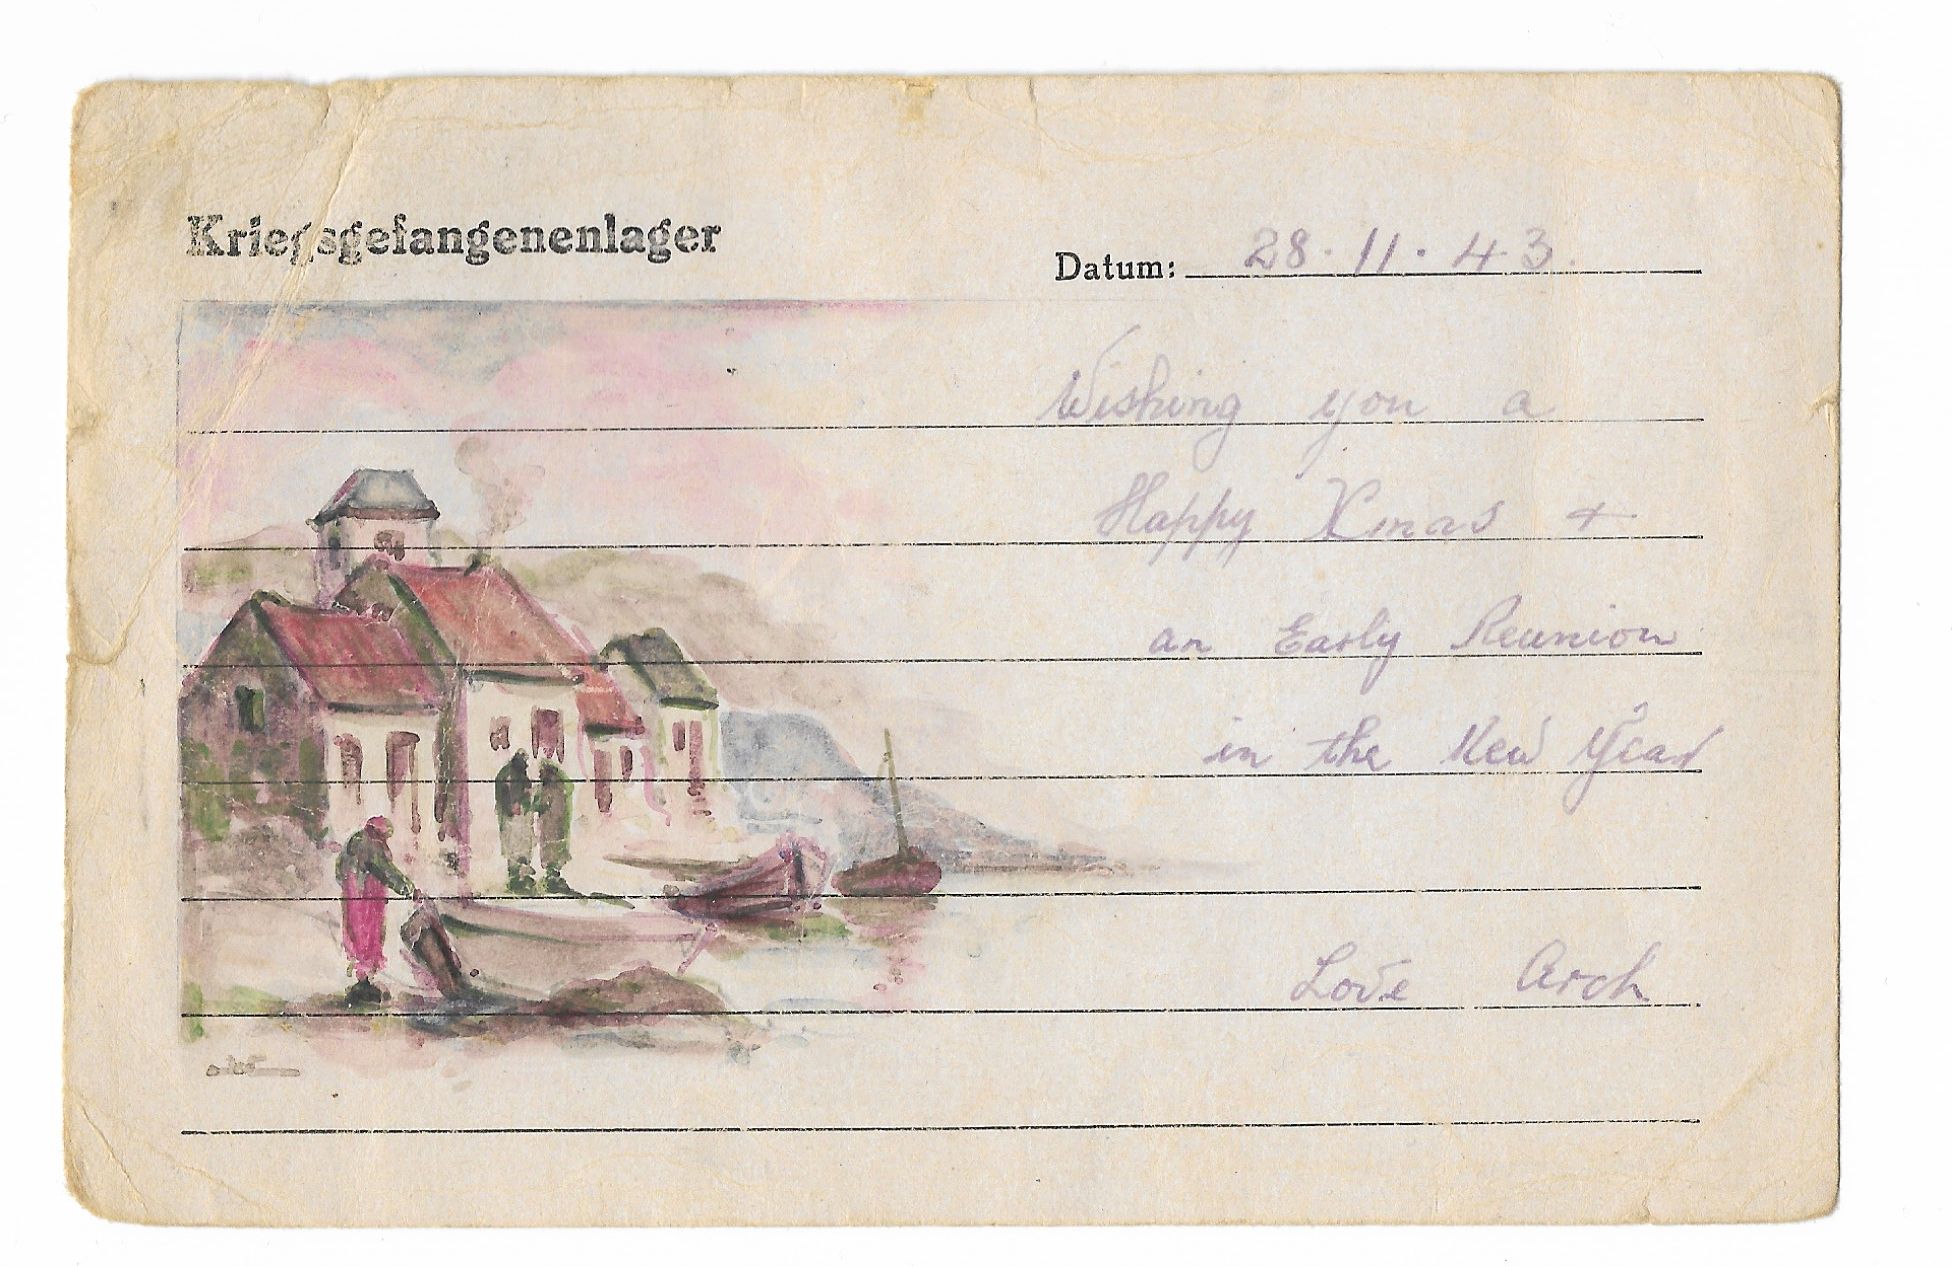 Kriegsgefangenenlager
Datum: 28.11.43.
Wishing you a
Happy Xmas +
an Early Reunion
in the New Year
Love Arch